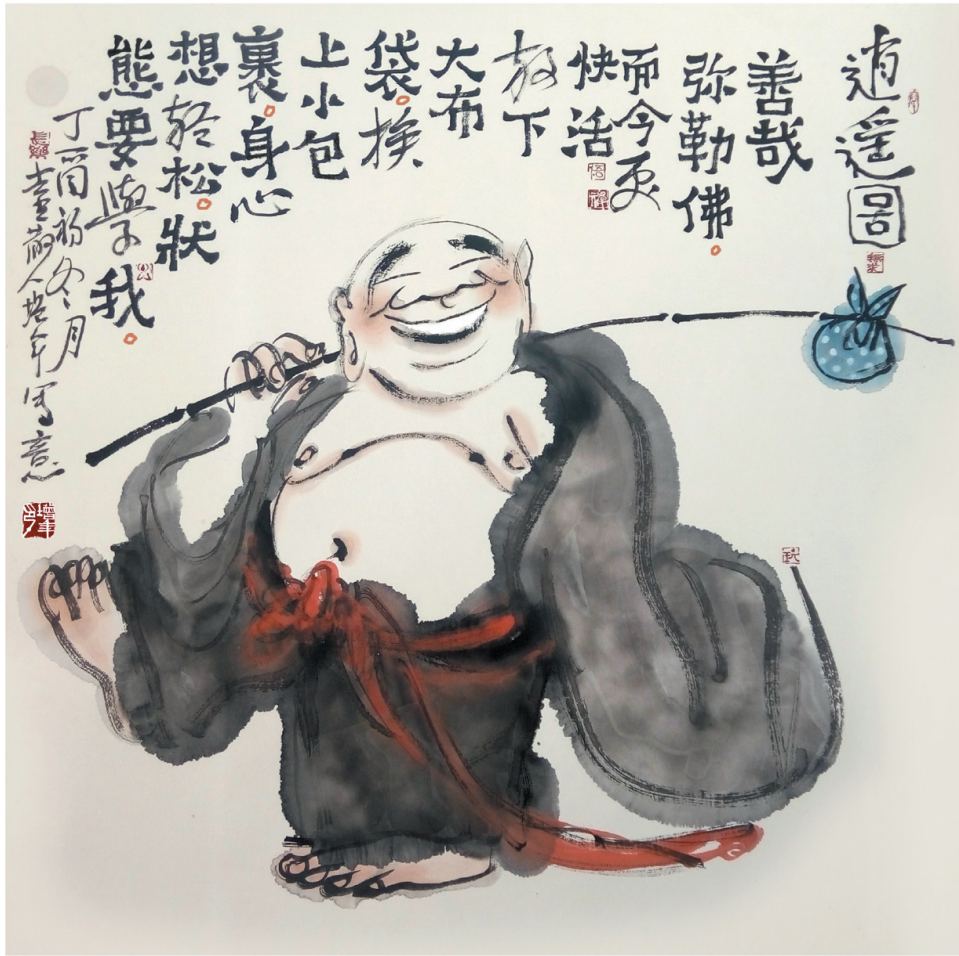 逍遥圖
善哉
弥勒佛。
而今更
快活
放下
大布
袋。挨
上小包
裹。身心
想轻松。狀
態要學我。
丁酉初冬月
童龄人培年写意